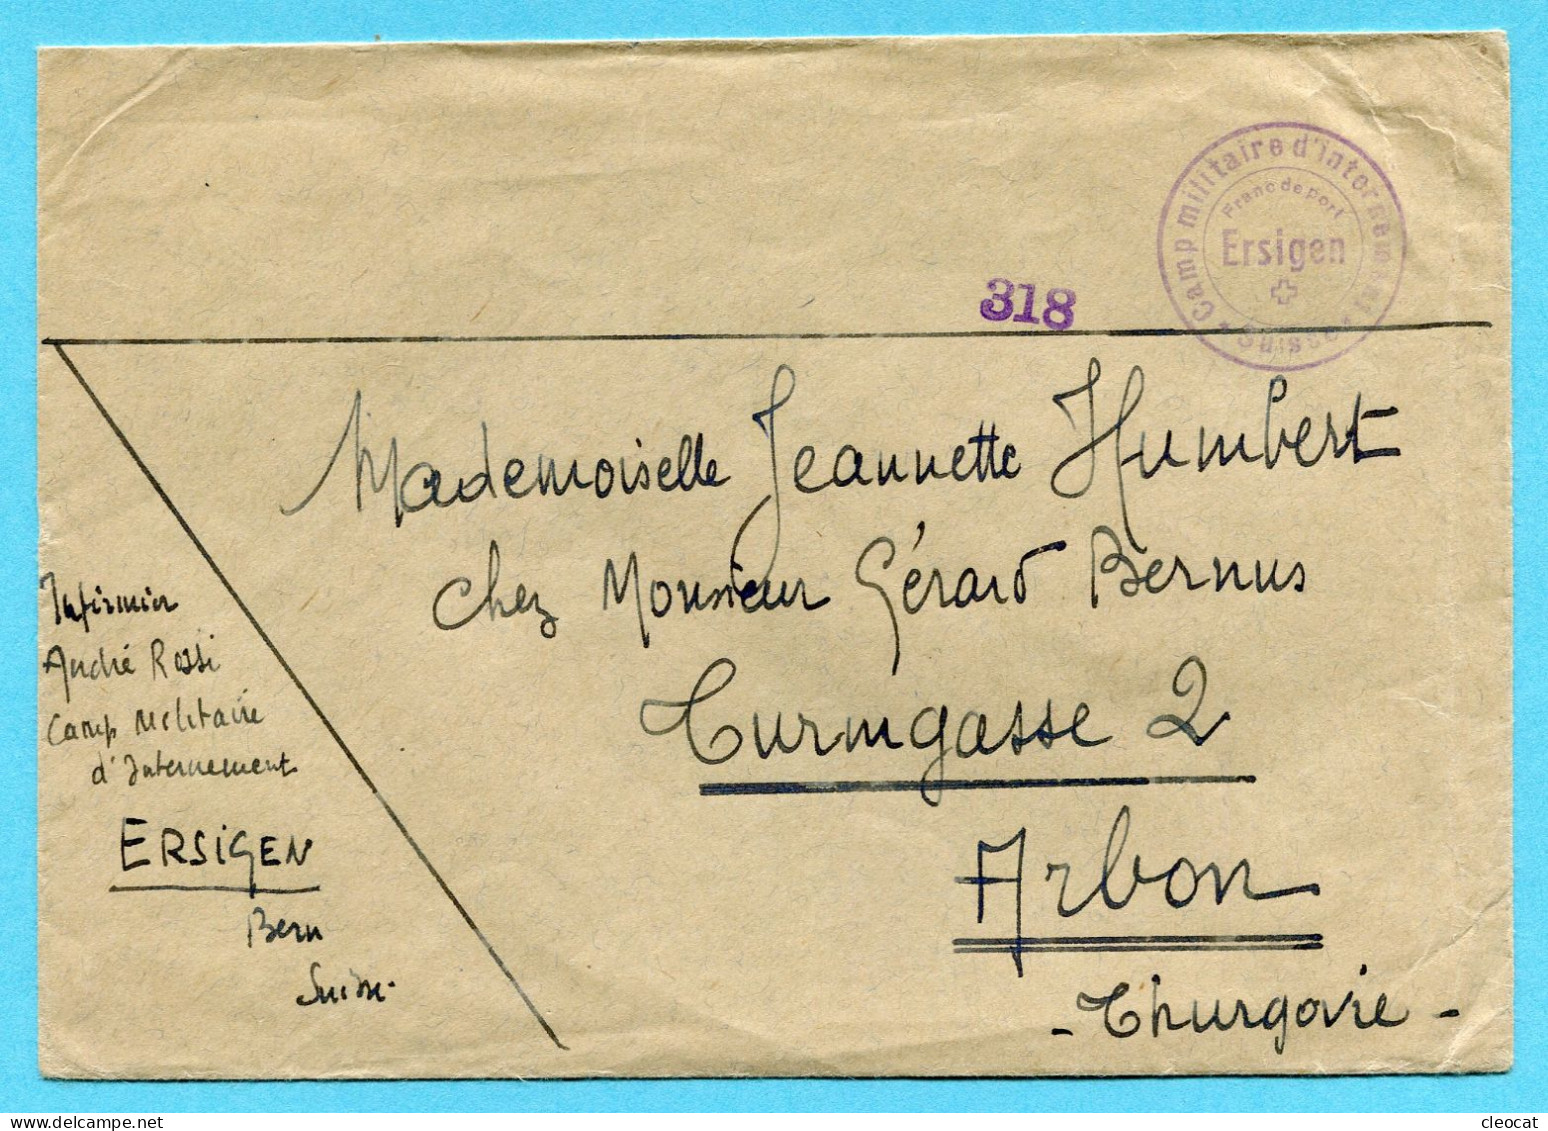 ★ Camp militaire d'internement ★ Suisse
Franc de port
Ersigen
318
Mademoiselle Jeannette Humbert
chez Monsieur Gérard Bernus
Turmgasse 2
Arbon
- Thurgovie -
Infirmier
André Rossi
Camp Militaire
d'Internement
ERSIGEN
Bern
Suisse.
cleocat